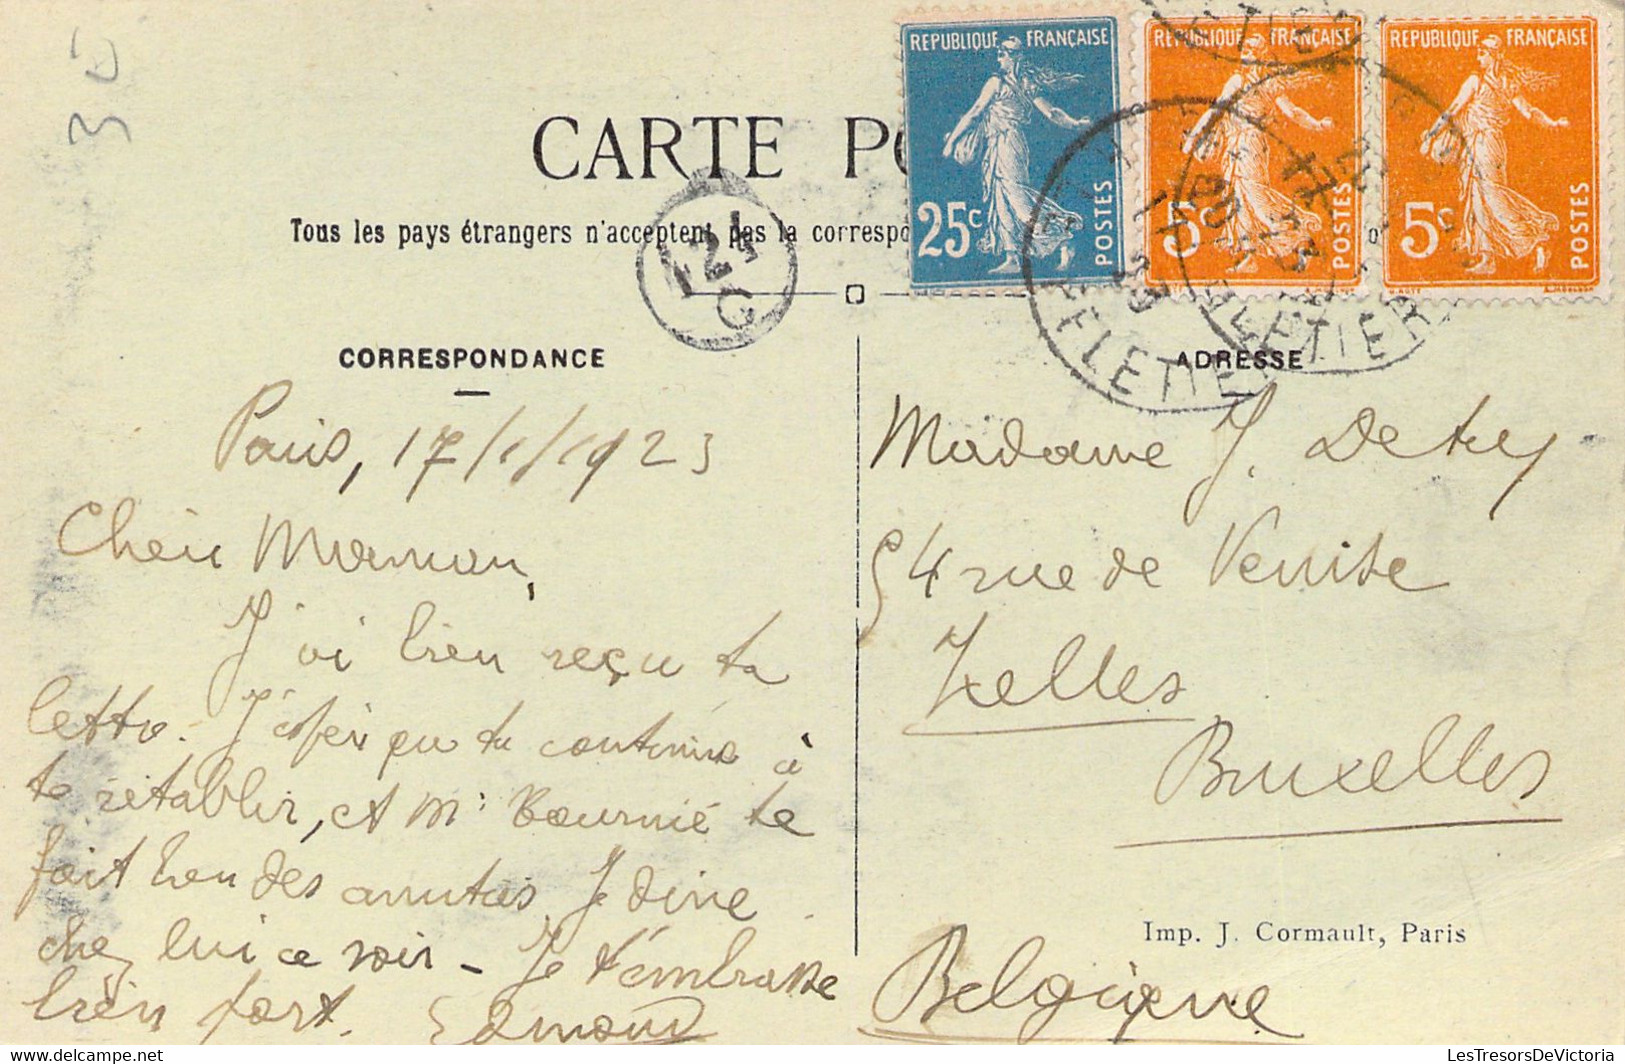 30
REPUBLIQUE FRANÇAISE
25c
POSTES
REPUBLIQUE FRANÇAISE
5c
POSTES
REPUBLIQUE FRANÇAISE
5c
POSTES
CARTE PO
Tous les pays étrangers n'acceptent pas la correspo
CORRESPONDANCE
ADRESSE
Paris, 17/1/1923
Chère Maman,
J'ai bien reçu ta
lettre. J'espère que tu continues à
te rétablir, et Mr Bournié te
fait bon des amitiés. Je dîne
chez lui ce soir - Je t'embrasse
bien fort. Edmond
Madame J. Detry
54 rue de Venise
Ixelles
Bruxelles
Belgique
Imp. J. Cormault, Paris
LesTresorsDeVictoria